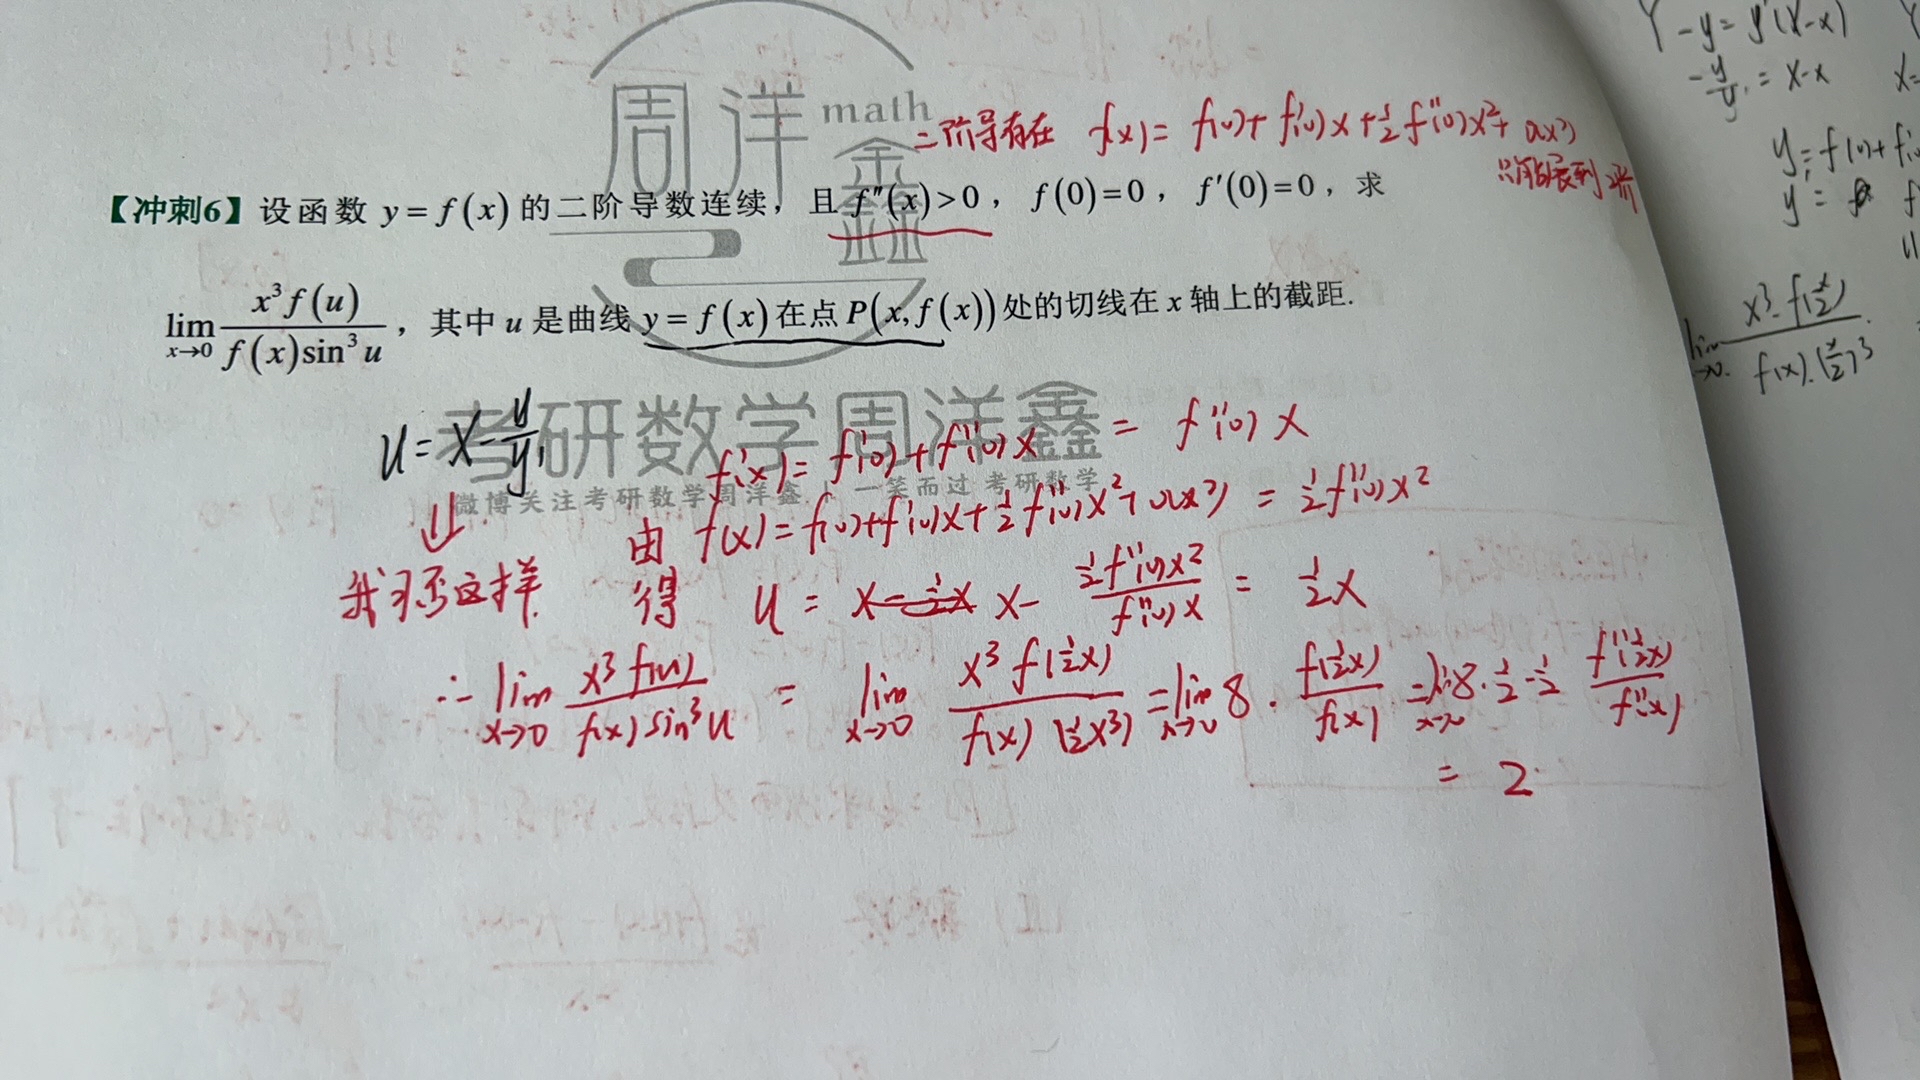 周洋 math
鑫
二阶导存在 f(x) = f(0) + f'(0)x + ½f''(0)x² + o(x²)
只能展到2阶
【冲刺6】设函数 y = f(x) 的二阶导数连续，且 f''(x)>0，f(0)=0，f'(0)=0，求
lim x→0 x³f(u) / f(x)sin³u ，其中 u 是曲线 y = f(x) 在点 P(x, f(x)) 处的切线在 x 轴上的截距.
考研数学周洋鑫
微博关注考研数学周洋鑫 一笑而过 考研数学
u = x - y/y'
f'(x) = f'(0) + f''(0)x = f''(0)x
由 f(x) = f(0) + f'(0)x + ½f''(0)x² + o(x²) = ½f''(0)x²
得 u = x - ½f''(0)x² / f''(0)x = ½x
∴ lim x→0 x³f(u) / f(x)sin³u = lim x→0 x³f(½x) / f(x)(½x³) = lim x→0 8 · f(½x) / f(x) = lim x→0 8 · ½ · ½ f''(½x) / f''(x)
= 2
Y - y = y'(X - x)
-y/y' = X - x
x³ · f(x/2) / f(x) · (x/2)³